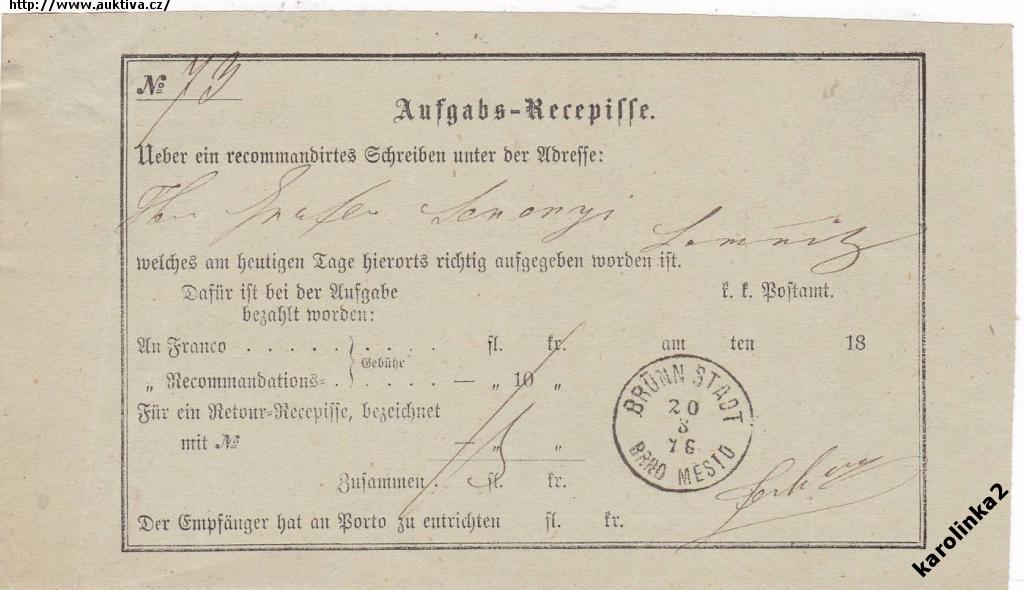 http://www.auktiva.cz/
№ 73
Aufgabs-Recepisse.
Ueber ein recommandirtes Schreiben unter der Adresse:
Grafen Serenyi
Lomnitz
welches am heutigen Tage hierorts richtig aufgegeben worden ist.
Dafür ist bei der Aufgabe bezahlt worden:
k. k. Postamt.
An Franco . . . . . . . . . fl. kr. am ten 18
Gebühr
„ Recommandations- . . . . . — „ 10 „
Für ein Retour-Recepisse, bezeichnet
mit № — „ „
Zusammen . fl. kr.
15
Der Empfänger hat an Porto zu entrichten fl. kr.
BRÜNN STADT
20
3
78
BRNO MESTO
karolinka2